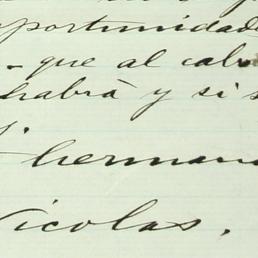 oportunidad
- que al cabo
habrá y si s
hermano
Nicolas.